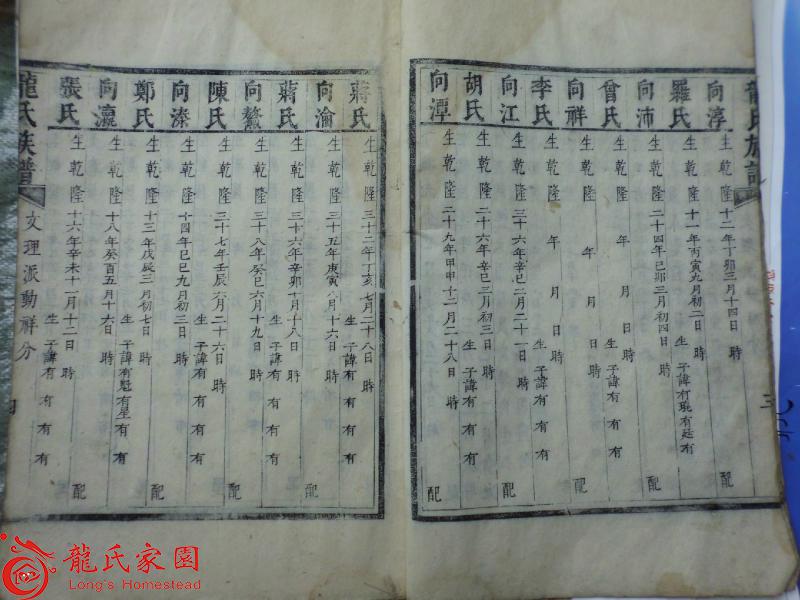 龍氏族譜
三
向淳 生乾隆十二年丁卯三月十四日 時 配
羅氏 生乾隆十一年丙寅九月初二日 時 生子諱有琨有廷有
向沛 生乾隆二十四年己卯三月初四日 時 配
曾氏 生乾隆 年 月 日 時 生子諱有有有
向祥 生乾隆 年 月 日 時 配
李氏 生乾隆 年 月 日 時 生子諱有有有
向江 生乾隆二十六年辛巳二月二十一日 時 配
胡氏 生乾隆二十六年辛巳三月初三日 時 生子諱有有有
向潭 生乾隆二十九年甲申十二月二十八日 時 配
蔣氏 生乾隆三十二年丁亥七月二十八日 時 生子諱有有有
向淪 生乾隆三十五年庚寅 月十六日 時 配
蔣氏 生乾隆三十六年辛卯十月十八日 時 生子諱有有有
向鰲 生乾隆三十八年癸巳六月十九日 時 配
陳氏 生乾隆三十七年壬辰六月二十六日 時 生子諱有有有
向溱 生乾隆十四年己巳九月初三日 時 配
鄭氏 生乾隆十三年戊辰三月初七日 時 生子諱有魁有星有有
向瀛 生乾隆十八年癸酉五月十六日 時 配
張氏 生乾隆十六年辛未十一月十二日 時 生子諱有有有有
龍氏族譜 文理派動祥分
四
龍氏家園
Long's Homestead